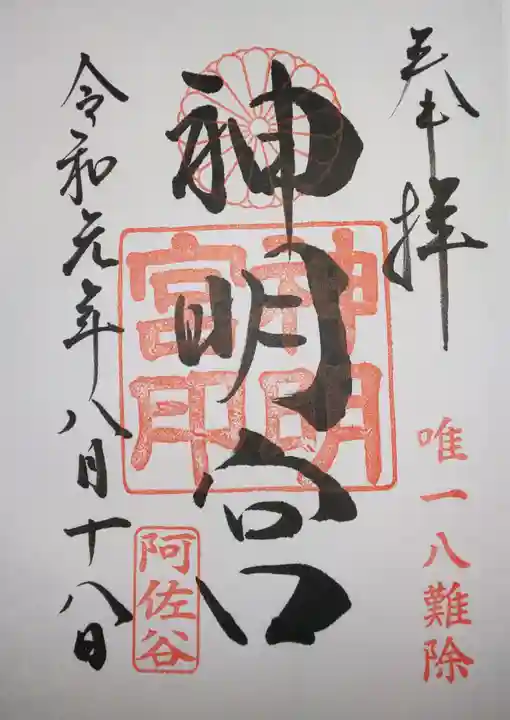 奉拝
唯一八難除
神明宮
神明
宮印
令和元年八月十八日
阿佐谷